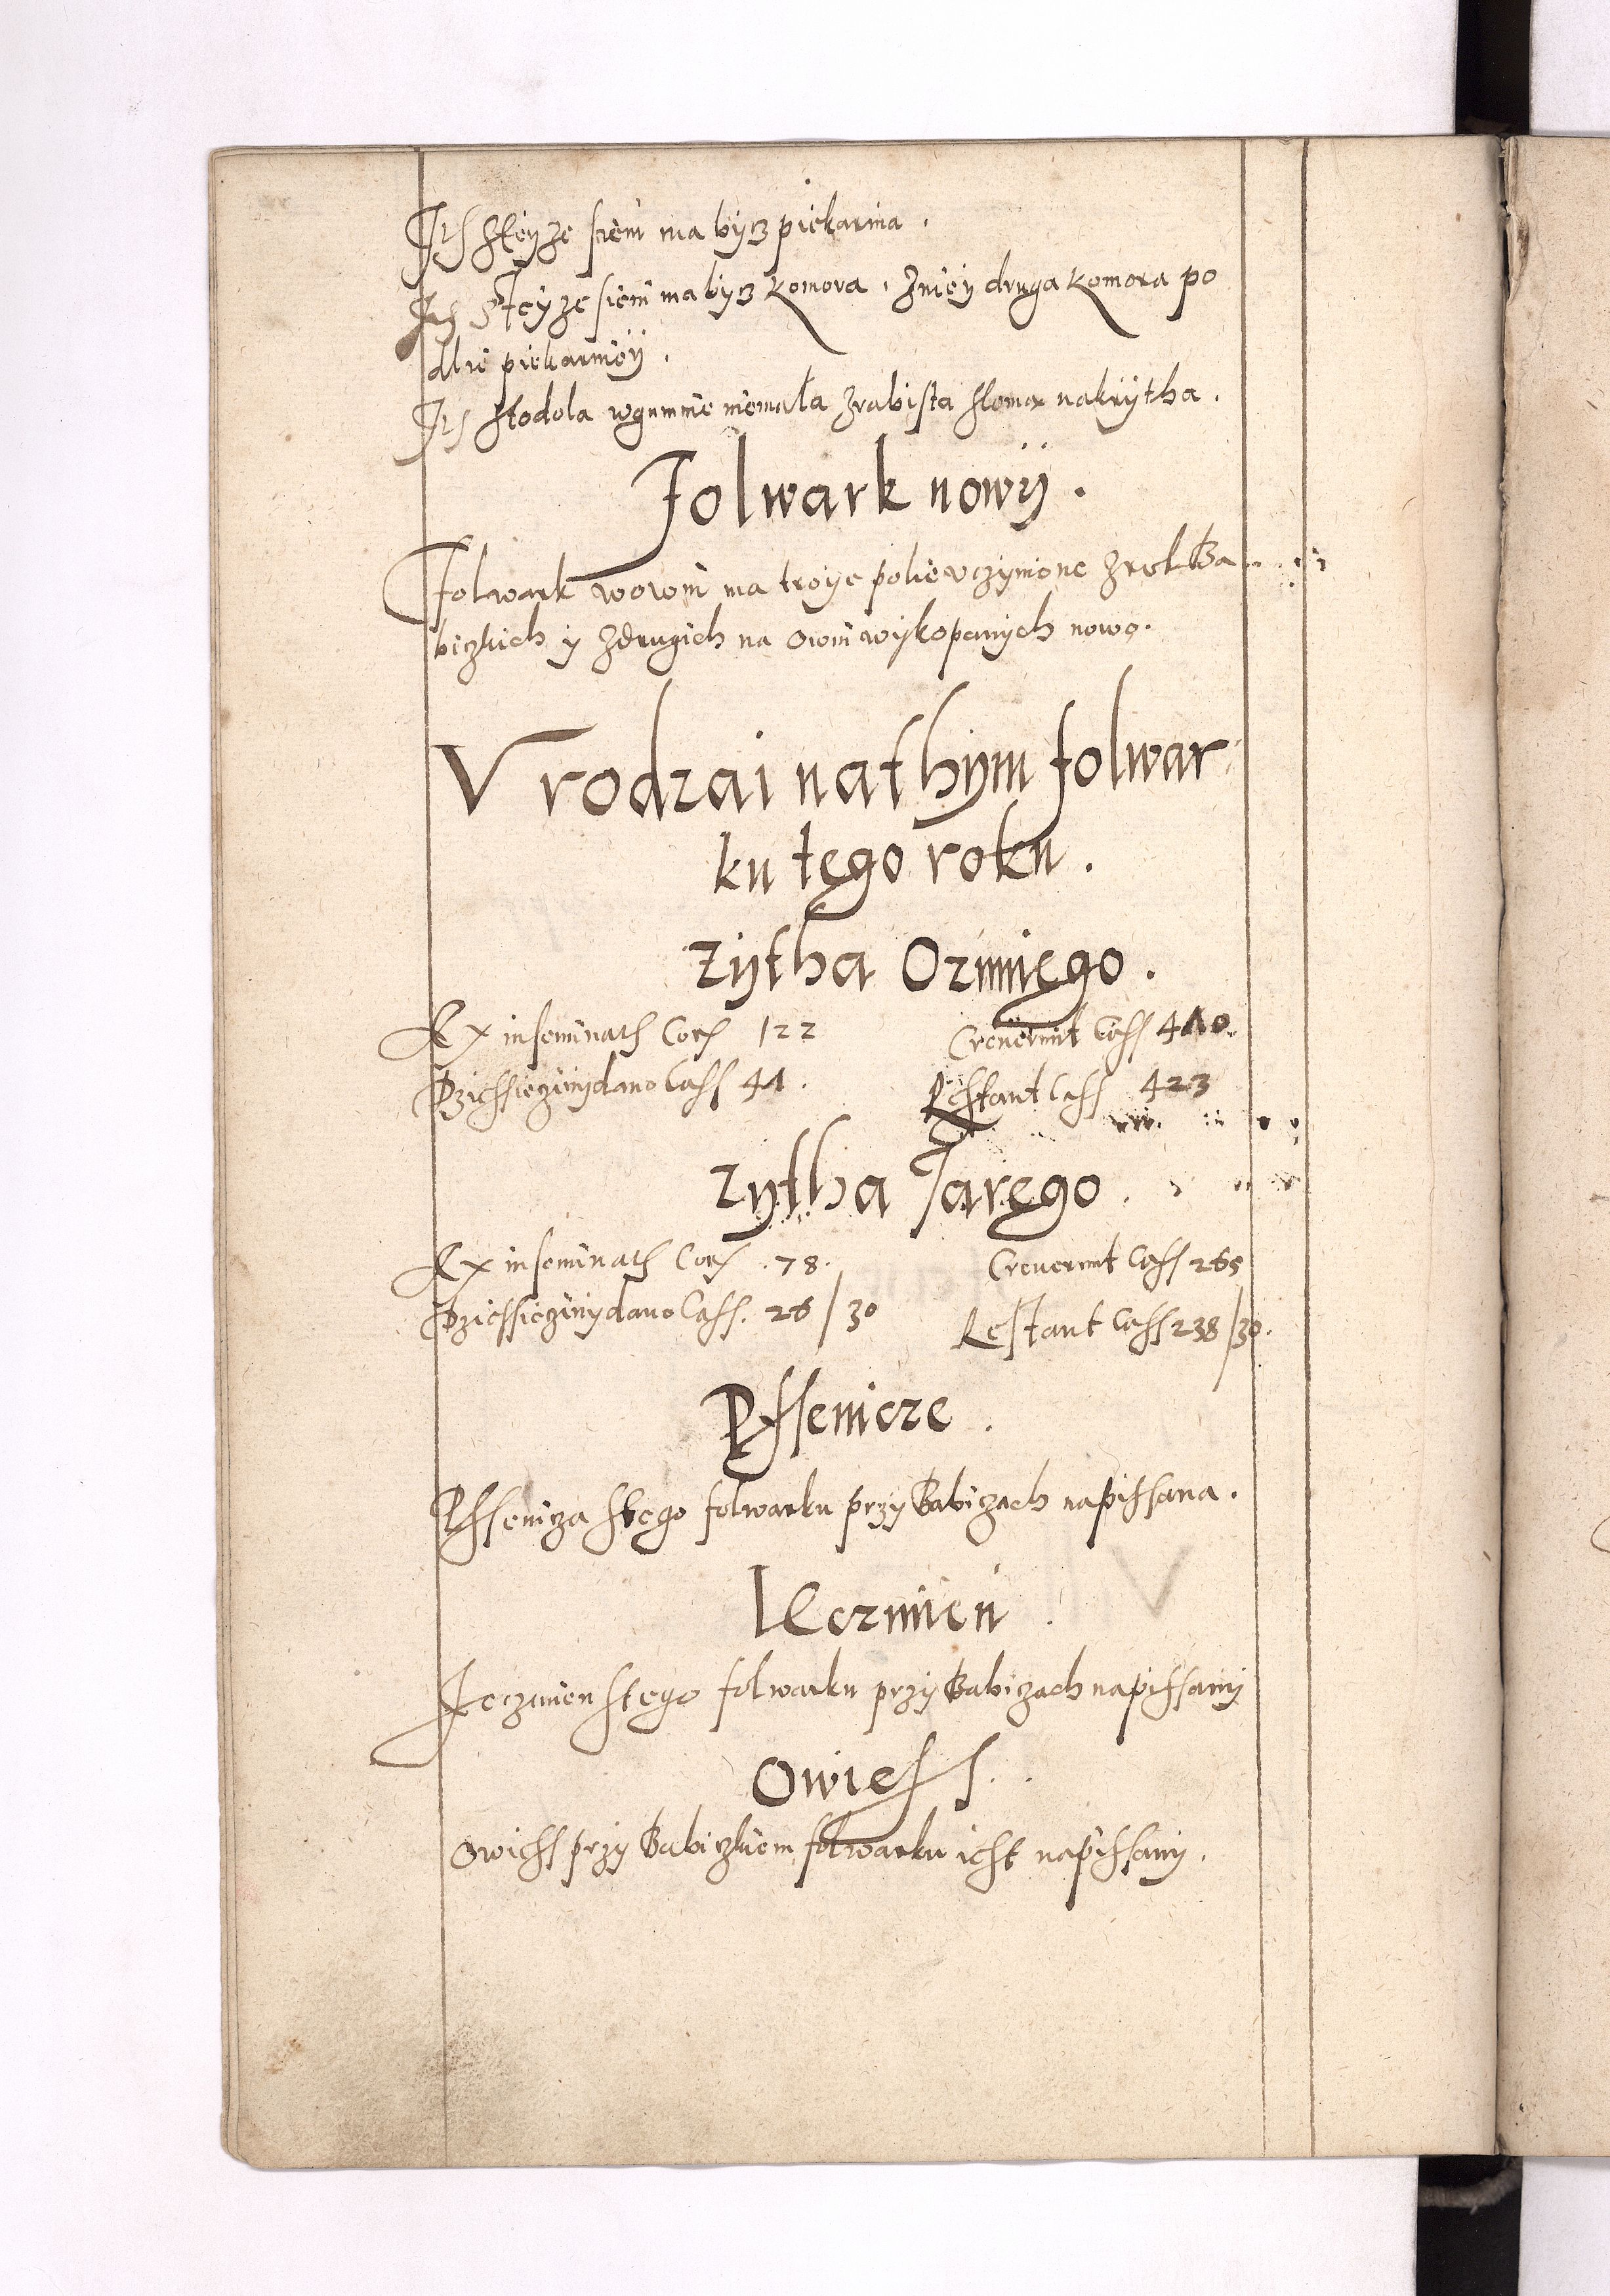 Its Steyze sieni ma bycz piekarnia.
Its Steyze sieni ma bycz komora. Zniey druga komora po
dlie piekarniey.
Its Stodola wgumnie niemala zrabista sloma nakrytha.
Folwark nowy.
Folwark nowy ma troye polie vczynione zrol Ba
biczkich y zdrugich na nowykopanych nowo.
Vrodzai nathym folwar
ku tego roku.
Zytha Ozimiego.
Ex inseminats Cors 122
Creuerunt Cass 440.
Dziessieciny dano Cass 44.
Restant Cass 423
Zytha Jarego.
Ex inseminats Cors 78.
Creuerunt Cass 265
Dziessieciny dano Cass. 26/30
Restant Cass 238/30.
Pssenicze.
Pssenicza stego folwarku przy Babiczach napissana.
Jeczmien.
Jeczmien stego folwarku przy Babiczach napissany
Owiess.
Owiess przy Babiczkiem folwarku iest napissany.